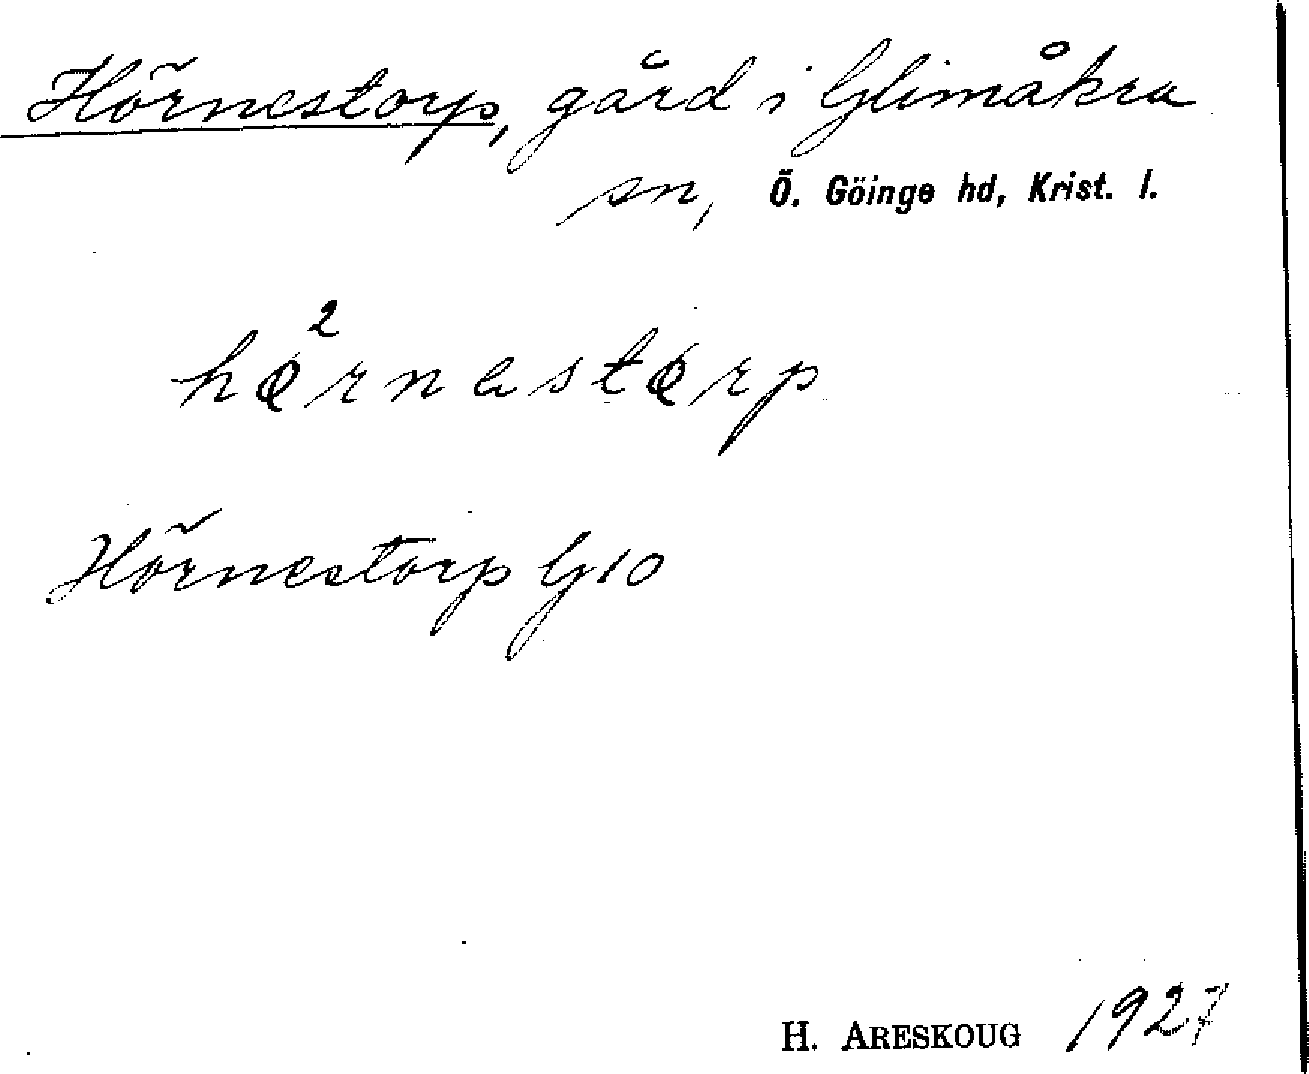 Hörnestorp, gård i Glimåkra
sn, Ö. Göinge hd, Krist. l.
2
hörnastørp
Hörnestorp G10
H. ARESKOUG 1927